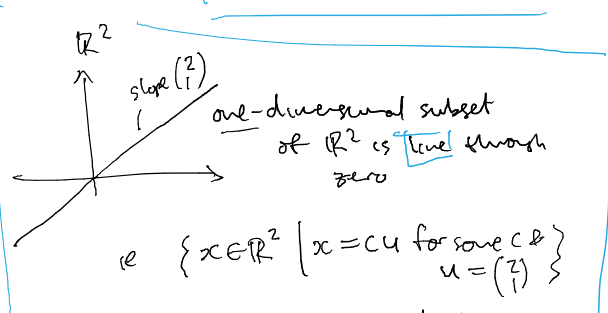 ℝ²
slope (2 1)
one-dimensional subset
of ℝ² is line through
zero
ie {x∈ℝ² | x = cu for some c &
u = (2 1)}